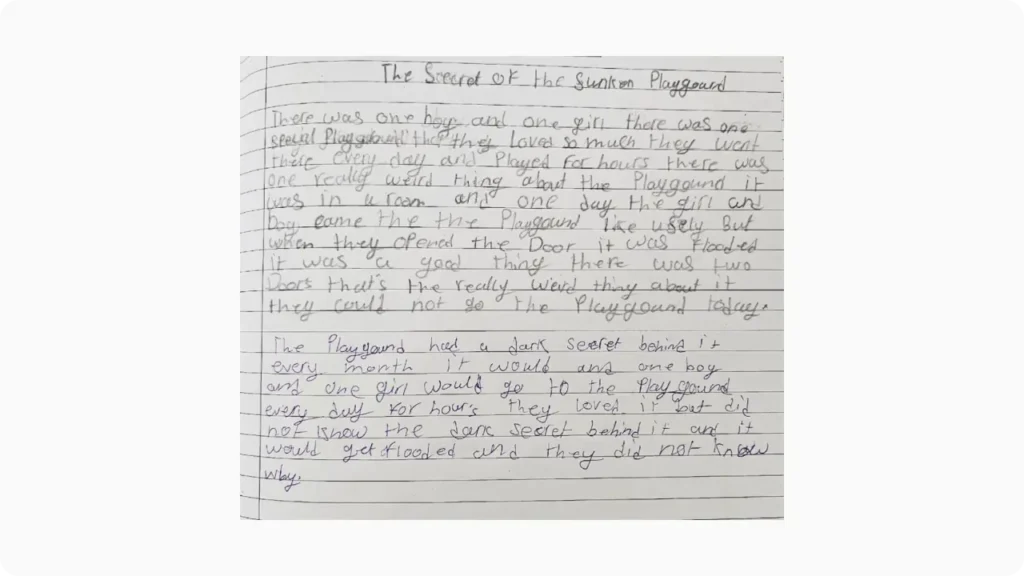 The Secret of the Sunken Playgound
There was one boy and one girl there was one
special Playgound that they Loved so much they went
there every day and Played for hours there was
one really weird thing about the Playgound it
was in a room and one day the girl and
boy came the the Playgound like usely But
when they opend the Door it was flooded
it was a good thing there was two
Doors that's the really weird thing about it
they could not go the Playgound today.
The Playgound had a dark secret behind it
every month it would and one boy
and one girl would go to the Playgound
every day for hours they loved it but did
not know the dark secret behind it and it
would get flooded and they did not know
why.